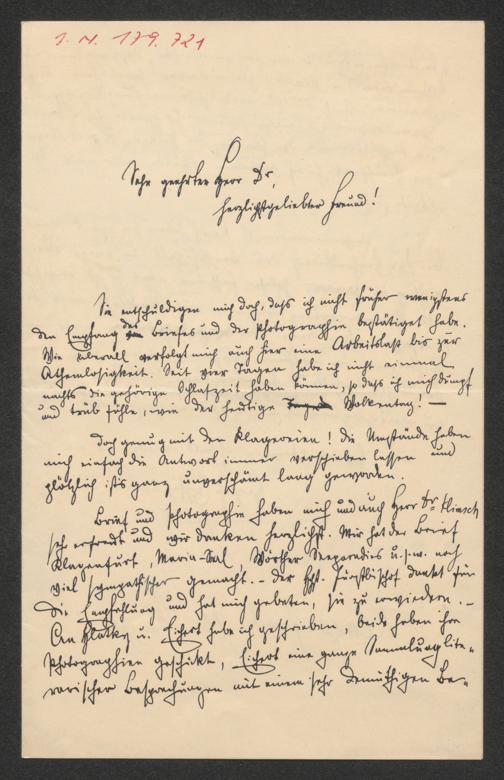 J. N. 179.721
Sehr geehrter Herr Dr,
herzlichstgeliebter Freund!
Sie entschuldigen mich doch, dass ich nicht früher wenigstens
den Empfang des Briefes und der Photographie bestätiget habe.
Wie überall verfolgt mich auch hier eine Arbeitslast bis zur
Athemlosigkeit. Seit vier Tagen habe ich nicht einmal
nachts die gehörige Schlafzeit haben können, so dass ich mich dumpf
und trüb fühle, wie der heutige Wolkentag! —
Doch genug mit den Klagereien! Die Umstände haben
mich einfach die Antwort immer verschieben lassen und
plötzlich ist's ganz unverschämt lang geworden.
Brief und Photographie haben mich und auch Herr Dr
sehr erfreut und wir danken herzlichst. Mir hat der Brief
Klagenfurt, Maria-Saal, Wörther Seeparadies u.s.w. noch
viel sympathischer gemacht. – Der Fürstbischof dankt für
die Empfehlung und hat mich gebeten, sie zu erwiedern. –
An u. Eichert habe ich geschrieben, beide haben ihre
Photographien geschickt, Eichert eine ganze Sammlung lite-
rarischer Besprechungen mit einem sehr demüthigen Be-